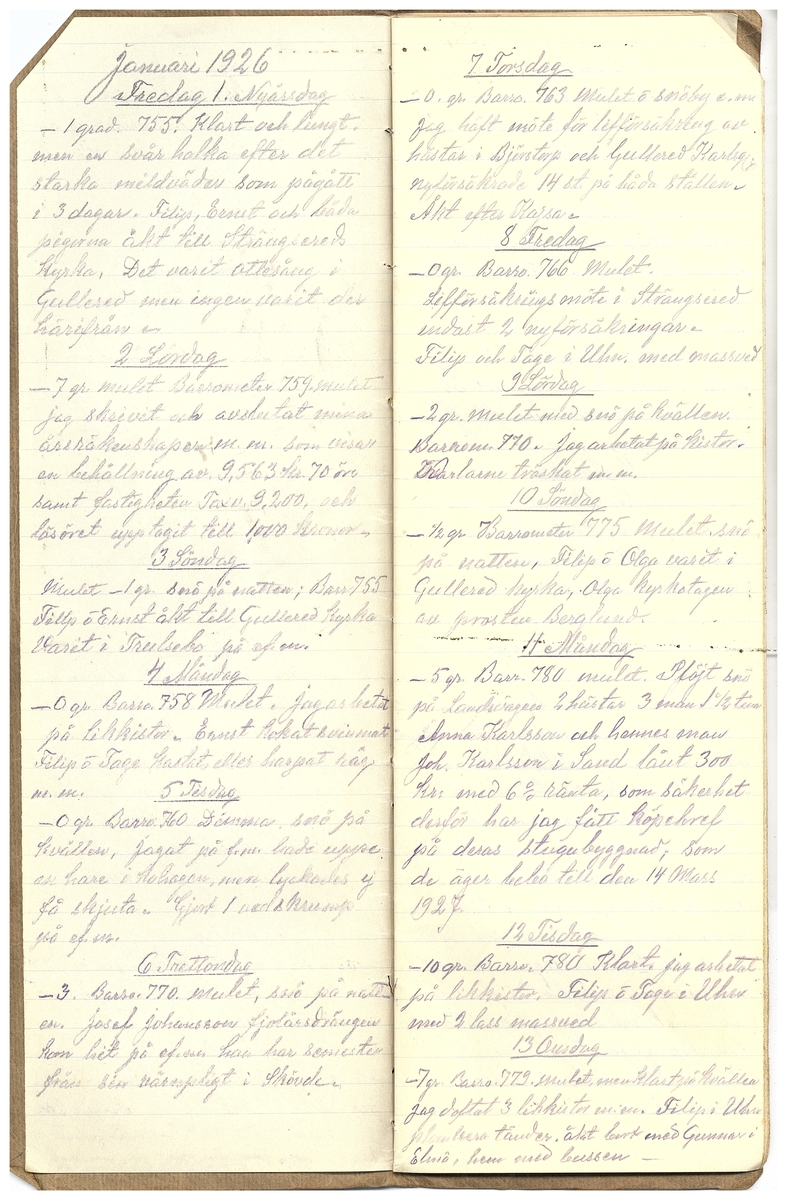 Januari 1926
Fredag 1. Nyårsdag
– 1 grad. 755. Klart och lungt.
men en svår halka efter det
starka mildväder som pågått
i 3 dagar. Filip, Ernst och båda
pigorna åkt till Strängsereds
Kyrka. Det varit ottesång i
Gullered men ingen varit der
härifrån.
2 Lördag
– 7 gr mulet Barrometer 759. mulet
jag skrivit och avslutat mina
årsräkenskaper m. m. som visar
en behållning av 9,563 kr. 70 öre
samt fastigheten Tax.v. 9,200, och
lösöret upptagit till 1,000 kronor.
3 Söndag
Mulet – 1 gr. snö på natten; Barr 755
Filip ö Ernst åkt till Gullered Kyrka
Varit i Trulsebo på ef.m.
4 Måndag
– 0 gr. Barro. 758 Mulet. jag arbetat
på likkistor. Ernst kokat svinmat
Filip ö Tage kastat eller harpat råg
m. m.
5 Tisdag
– 0 gr. Barro. 760 Dimma, snö på
kvällen, jagat på f.m. hade uppe
en hare i hohagen, men lyckades ej
få skjuta. Gjort 1 vedskrump
på ef.m.
6 Trettondag
– 3. Barro. 770. mulet, snö på natt-
en. Josef Johansson fjolårsdrängen
kom hit på ef.m han har semester
från sin värnpligt i Skövde.
7 Torsdag
– 0. gr. Barro. 763 Mulet ö snöby e. m
Jag haft möte för lifförsäkring av
hästar i Björstorp och Gullered Karlsg.
nyförsäkrade 14 st på båda ställen.
Åkt efter Kajsa.
8 Fredag
– 0 gr. Barro. 766 Mulet.
Lifförsäkringsmöte i Strängsered
endast 2 nyförsäkringar.
Filip och Tage i Uhn. med massved
9 Lördag
– 2 gr. Mulet med snö på kvällen.
Barrom. 770. Jag arbetat på kistor.
Karlarne tröskat m. m.
10 Söndag
– ½ gr Barrometer 775 Mulet. snö
på natten, Filip ö Olga varit i
Gullered kyrka, Olga kyrkotagen
av prosten Berglund.
11 Måndag
– 5 gr. Barr. 780 mulet. Plöjt snö
på Landsvägen 2 hästar 3 man 1 ½ tim
Anna Karlsson och hennes man
Joh. Karlsson i Sand lånt 300
kr. med 6 % ränta, som säkerhet
derför har jag fått köpebref
på deras stugubyggnad; som
de äger bebo till den 14 Mars
1927.
12 Tisdag
– 10 gr. Barro. 780 Klart. jag arbetat
på likkistor. Filip ö Tage i Uhn
med 2 lass massved
13 Onsdag
– 7 gr. Barro. 779. mulet, men klart på kvällen
Jag doftat 3 likkistor m.m. Filip i Uhn
plombera tänder. åkt bort med Gunnar i
Elmö, hem med bussen –